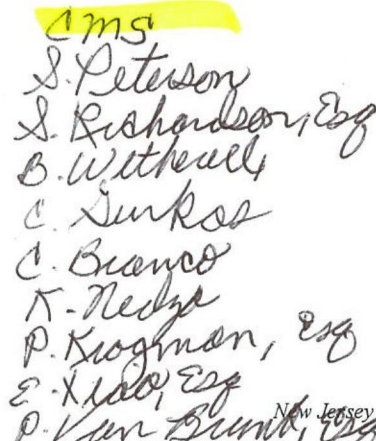 CMS
S. Peterson
S. Richardson, Esq
B. Witherell
C. Gurkas
C. Branco
K. Nedza
P. Krogman, Esq
E. Xiao, Esq
P. Van Brunt, Esq
New Jersey